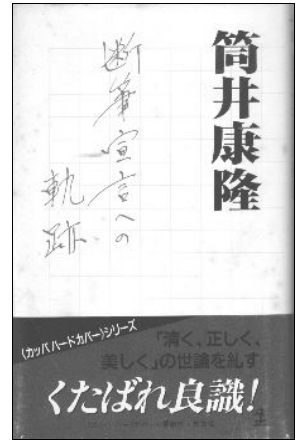 筒井康隆
断筆宣言への
軌跡
〈カッパハードカバー〉シリーズ
「清く、正しく、
美しく」の世論を糺す
くたばれ良識!